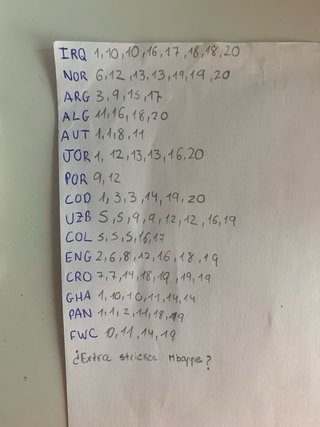 IRQ 1,10,10,16,17,18,18,20
NOR 6,12,13,13,19,19,20
ARG 3,9,15,17
ALG 11,16,18,20
AUT 1,1,8,11
JOR 1,12,13,13,16,20
POR 9,12
COD 1,3,3,14,19,20
UZB 5,5,9,9,12,12,16,19
COL 5,5,5,16,17
ENG 2,6,8,12,16,18,19
CRO 7,7,14,18,19,19,19
GHA 1,10,10,11,14,14
PAN 1,1,2,11,18,19
FWC 10,11,14,19
¿Extra stricker Mbappe?